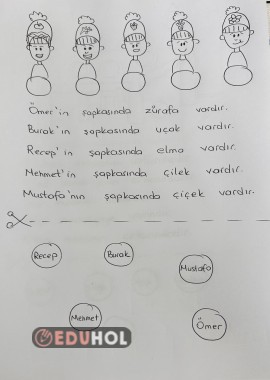 Ömer'in şapkasında zürafa vardır.
Burak'ın şapkasında uçak vardır.
Recep'in şapkasında elma vardır.
Mehmet'in şapkasında çilek vardır.
Mustafa'nın şapkasında çiçek vardır.
Recep
Burak
Mustafa
Mehmet
Ömer
EDUHOL